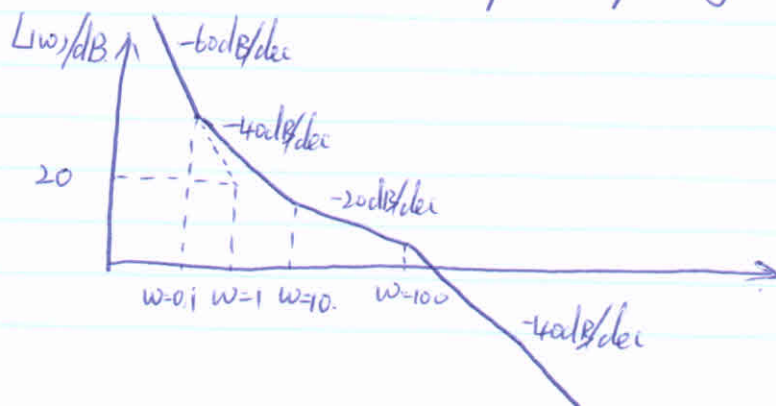 L(w)/dB
-60dB/dec
-40dB/dec
20
-20dB/dec
w=0.1 w=1 w=10. w=100
-40dB/dec